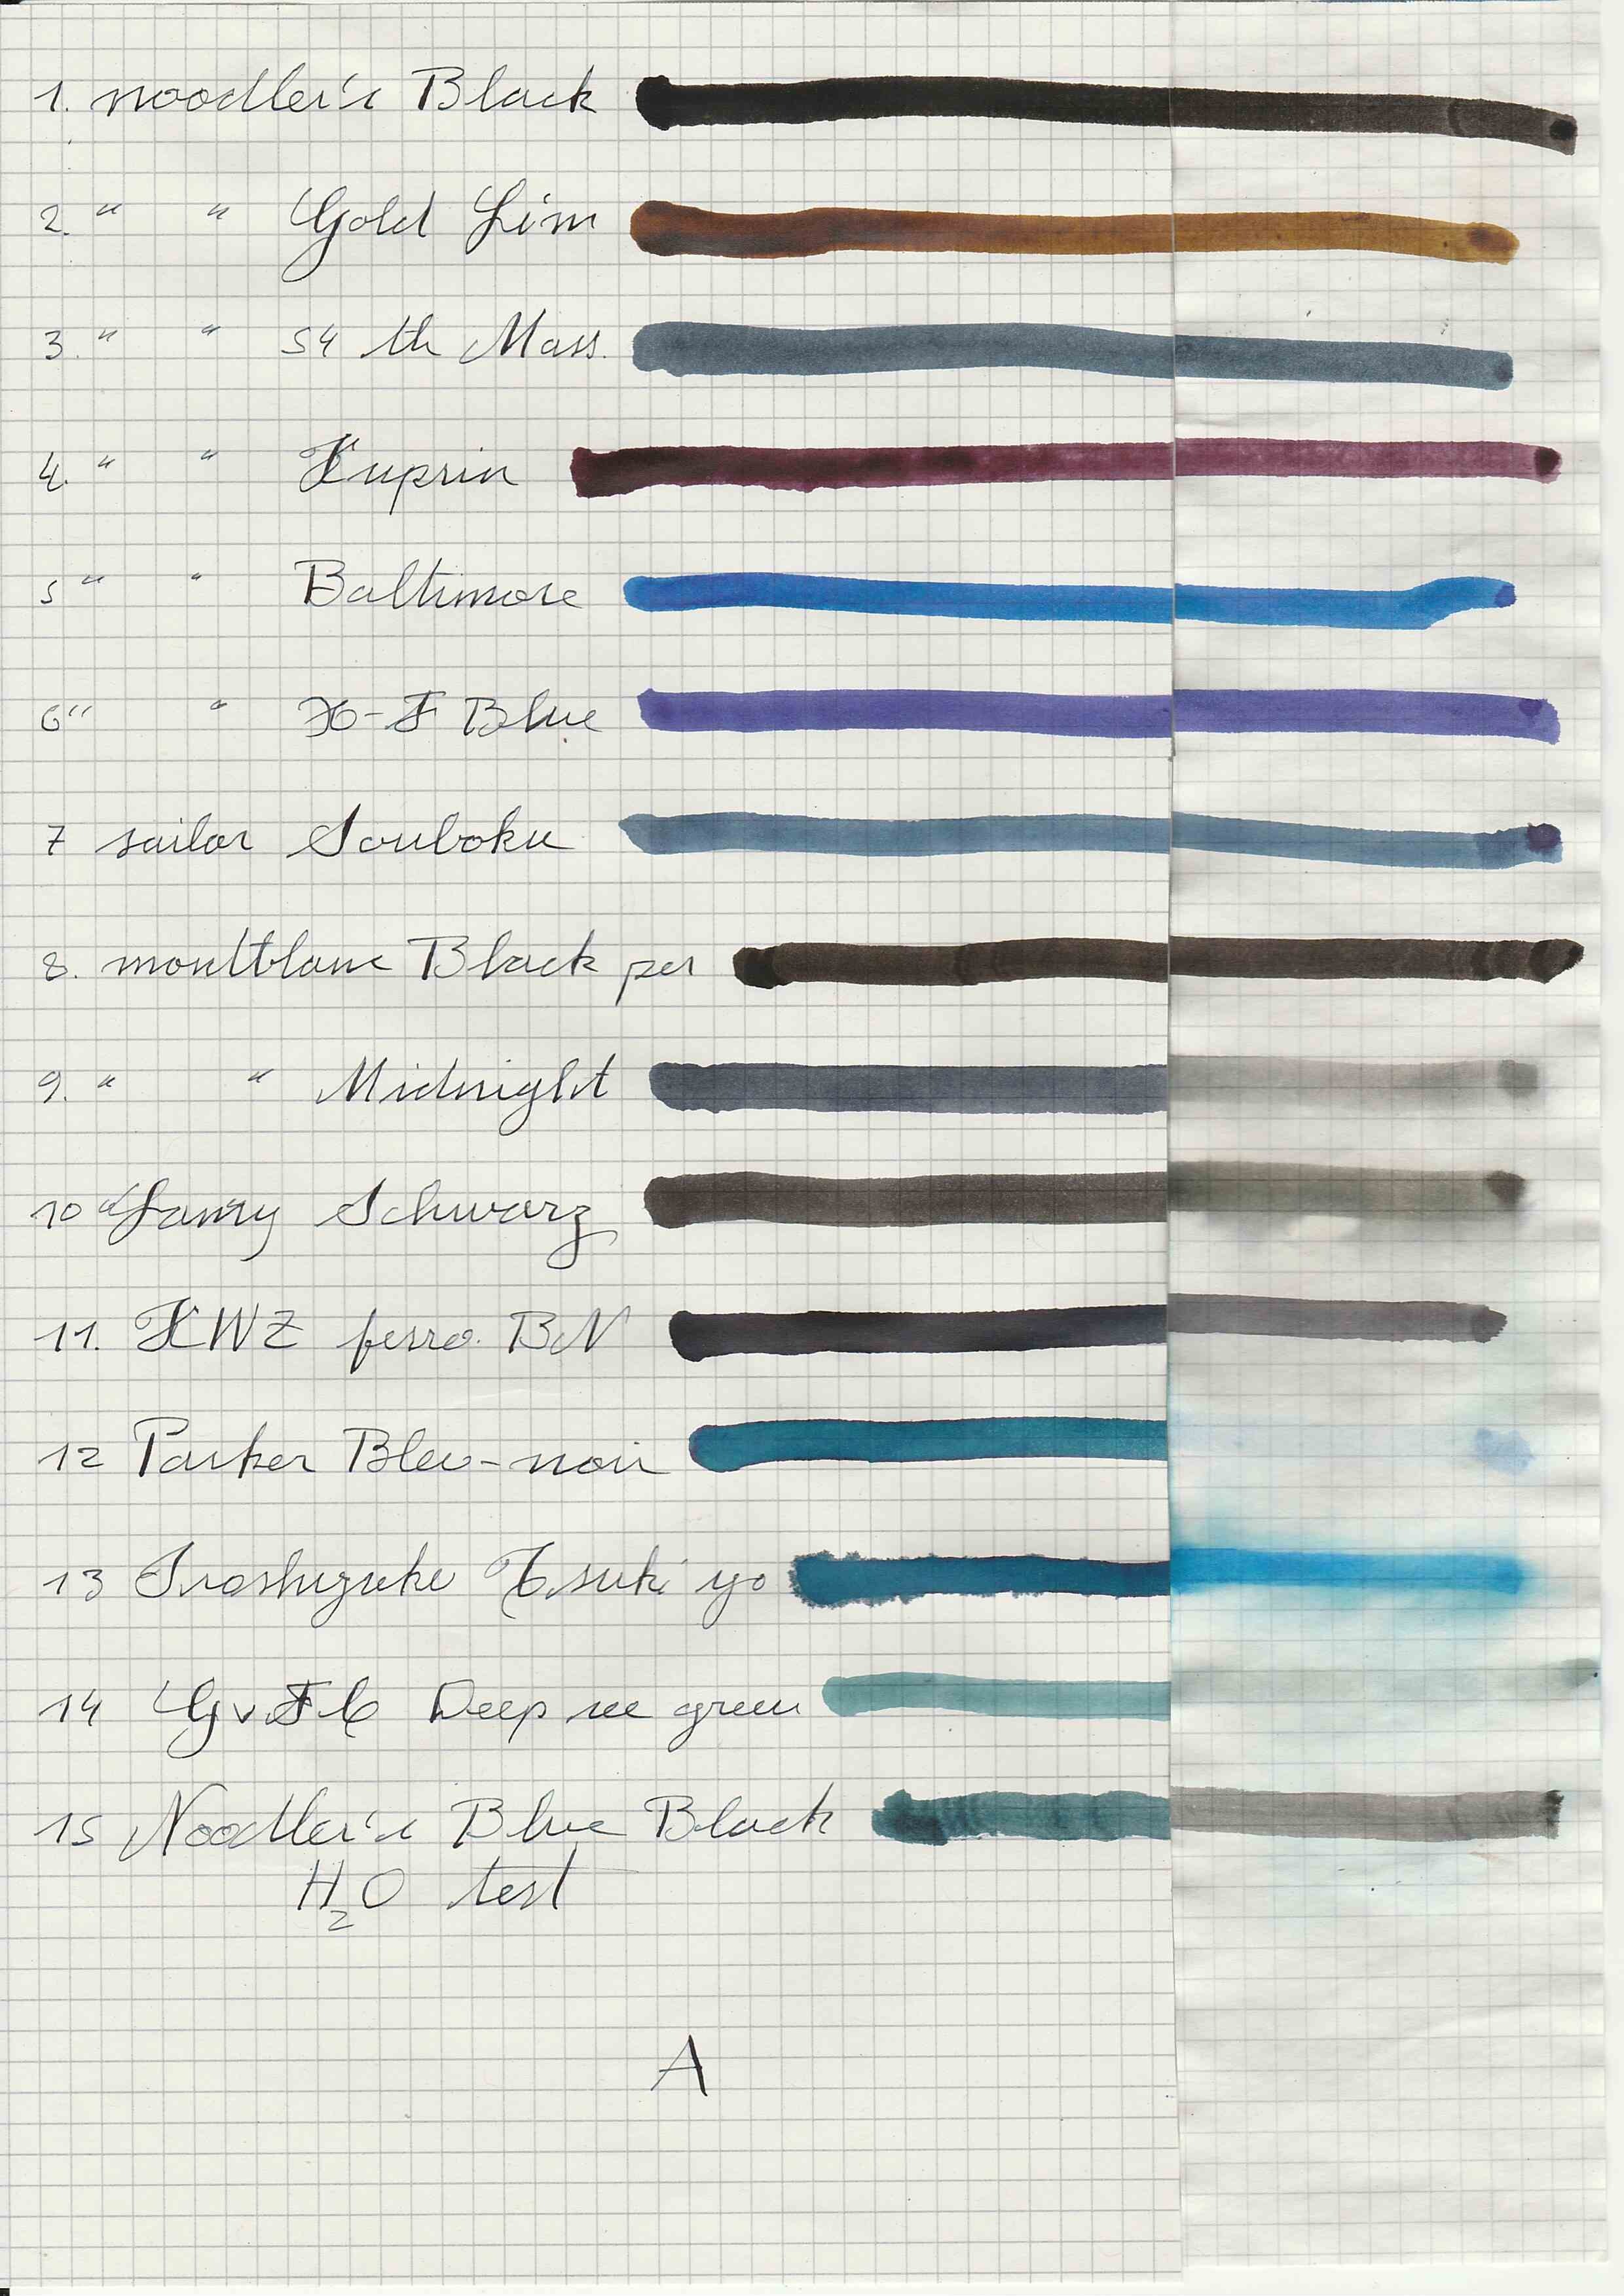 1. noodler's Black
2. " " Gold Lim
3. " " 54 th Mass.
4. " " Kuprin
5 " " Baltimore
6 " " H-F Blue
7 sailor Souboku
8. montblanc Black per
9. " " Midnight
10 Lamy Schwarz
11. KWZ ferro. BN
12 Parker Bleu-noir
13 Iroshizuku Tsuki yo
14 GvFC Deep see green
15 Noodler's Blue Black
H2O test
A